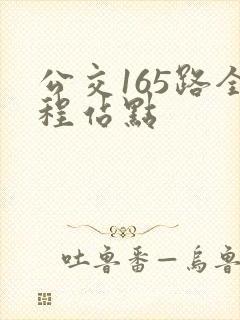 公交165路全
程佔點
吐魯番—烏魯